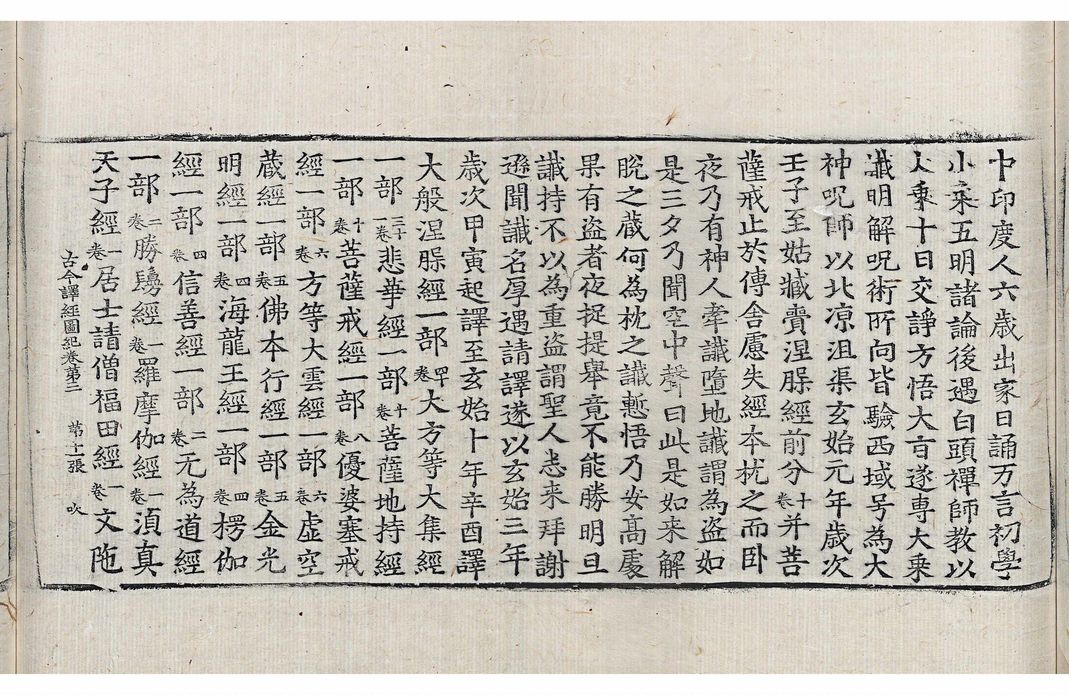 中印度人六歲出家日誦万言初學
小乘五明諸論後遇白頭禪師教以
大乘十日交諍方悟大旨遂專大乘
讖明解呪術所向皆驗西域号為大
神呪師以北涼沮渠玄始元年歲次
壬子至姑臧賷涅槃經前分十卷并菩
薩戒止於傳舍慮失經本枕之而卧
夜乃有神人牽讖墮地讖謂為盜如
是三夕乃聞空中聲曰此是如来解
脫之藏何為枕之讖慙悟乃安高處
果有盜者夜捉提舉竟不能勝明旦
讖持不以為重盜謂聖人悉来拜謝
遜聞讖名厚遇請譯遂以玄始三年
歲次甲寅起譯至玄始十年辛酉譯
大般涅槃經一部四十卷大方等大集經
一部三十一卷悲華經一部十卷菩薩地持經
一部十卷菩薩戒經一部八卷優婆塞戒
經一部六卷方等大雲經一部六卷虛空
藏經一部五卷佛本行經一部五卷金光
明經一部四卷海龍王經一部四卷楞伽
經一部四卷信善經一部二卷无為道經
一部二卷勝鬘經一卷羅摩伽經一卷湏真
天子經一卷居士請僧福田經一卷文陁
古今譯經圖紀卷第三 第十一張 吹